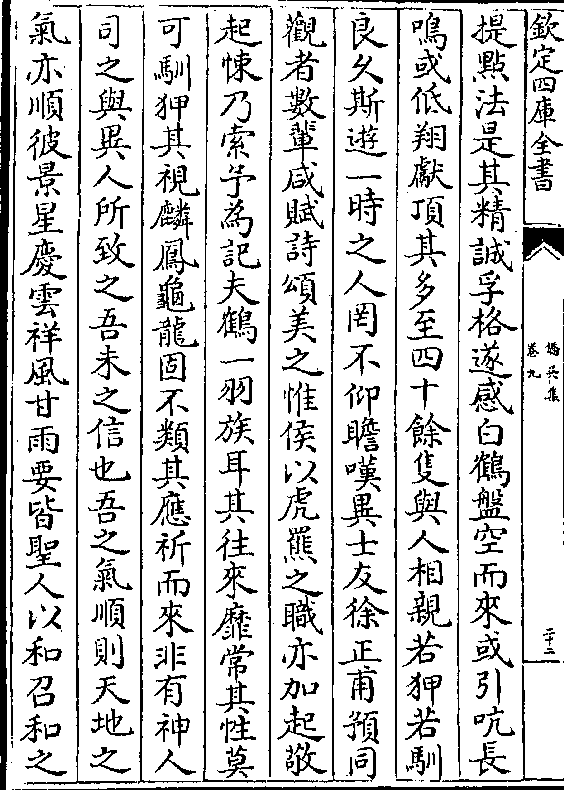 欽定四庫全書
卷九
二十二
提㸃法是其精誠孚格遂感白鶴盤空而來或引吭長
鳴或低翔獻頂其多至四十餘隻與人相親若狎若馴
良久斯逰一時之人罔不仰瞻嘆異士友徐正甫預同
觀者數輩咸賦詩頌美之惟侯以虎羆之職亦加起敬
起悚乃索予為記夫鶴一羽族耳其往來靡常其性莫
可馴狎其視麟鳳龜龍固不類其應祈而來非有神人
司之與異人所致之吾未之信也吾之氣順則天地之
氣亦順彼景星慶雲祥風甘雨要皆聖人以和召和之